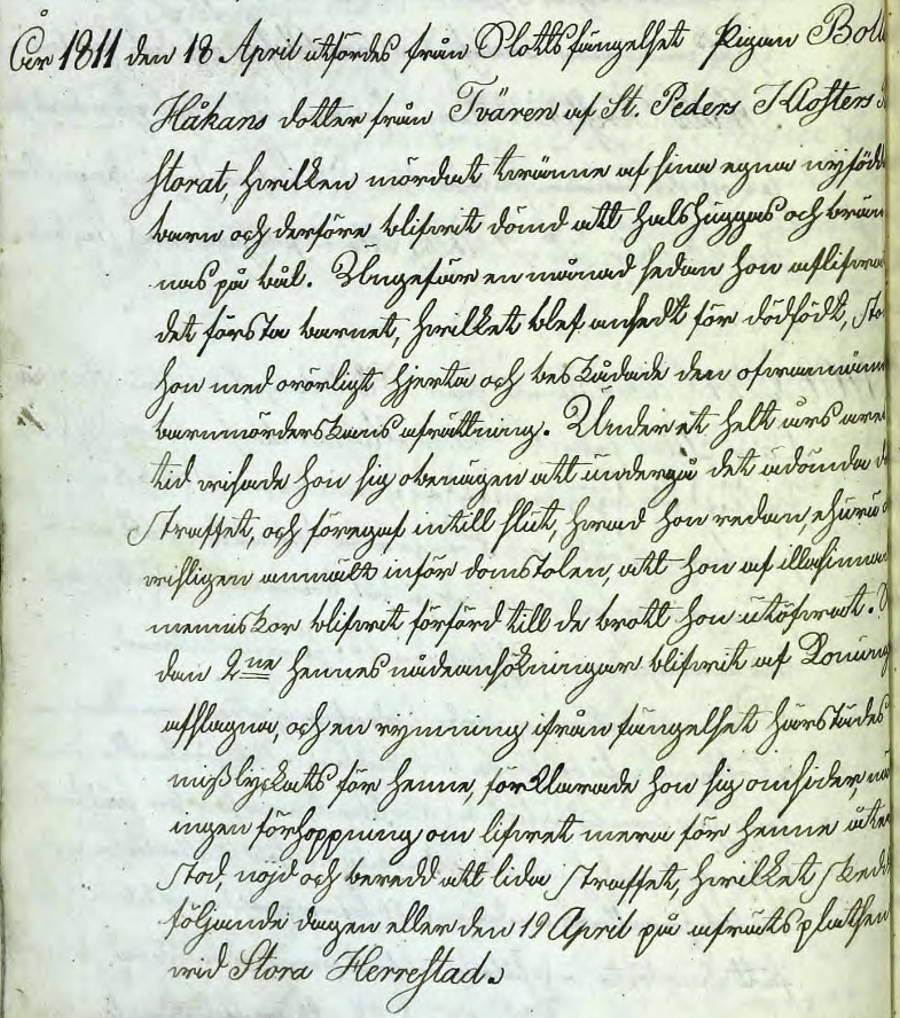 År 1811 den 18 April utfördes från Slottsfängelset Pigan Boll
Håkans dotter från Tvären af St. Peders Klosters
Storat, hvilken mördat tvänne af sina egna nyfödd
barn och derföre blifvit dömd att halshuggas och brän
nas på bål. Ungefär en månad sedan hon aflifva
det första barnet, hvilket blef ansedt för dödfödt, sto
hon med orörligt hjerta och beskådade den ofvannämn
barnmörderskans afrättning. Under et helt års are
tid visade hon sig obenägen att undergå det ådömda d
Straffet, och föregaf intill slut, hvad hon redan, ehuru
visligen anmält inför domstolen, att hon af illasinna
menniskor blifvit förförd till de brott hon utöfvat. S
dan 2ne hennes nådeansökningar blifvit af Konung
afslagna, och en rymning ifrån fängelset härstädes
misslyckats för henne, förklarade hon sig omsider, nä
ingen förhoppning om lifvet mera för henne åter
stod, nöjd och beredd att lida Straffet, hvilket skedd
följande dagen eller den 19 April på afrätsplatsen
vid Stora Herrestad.